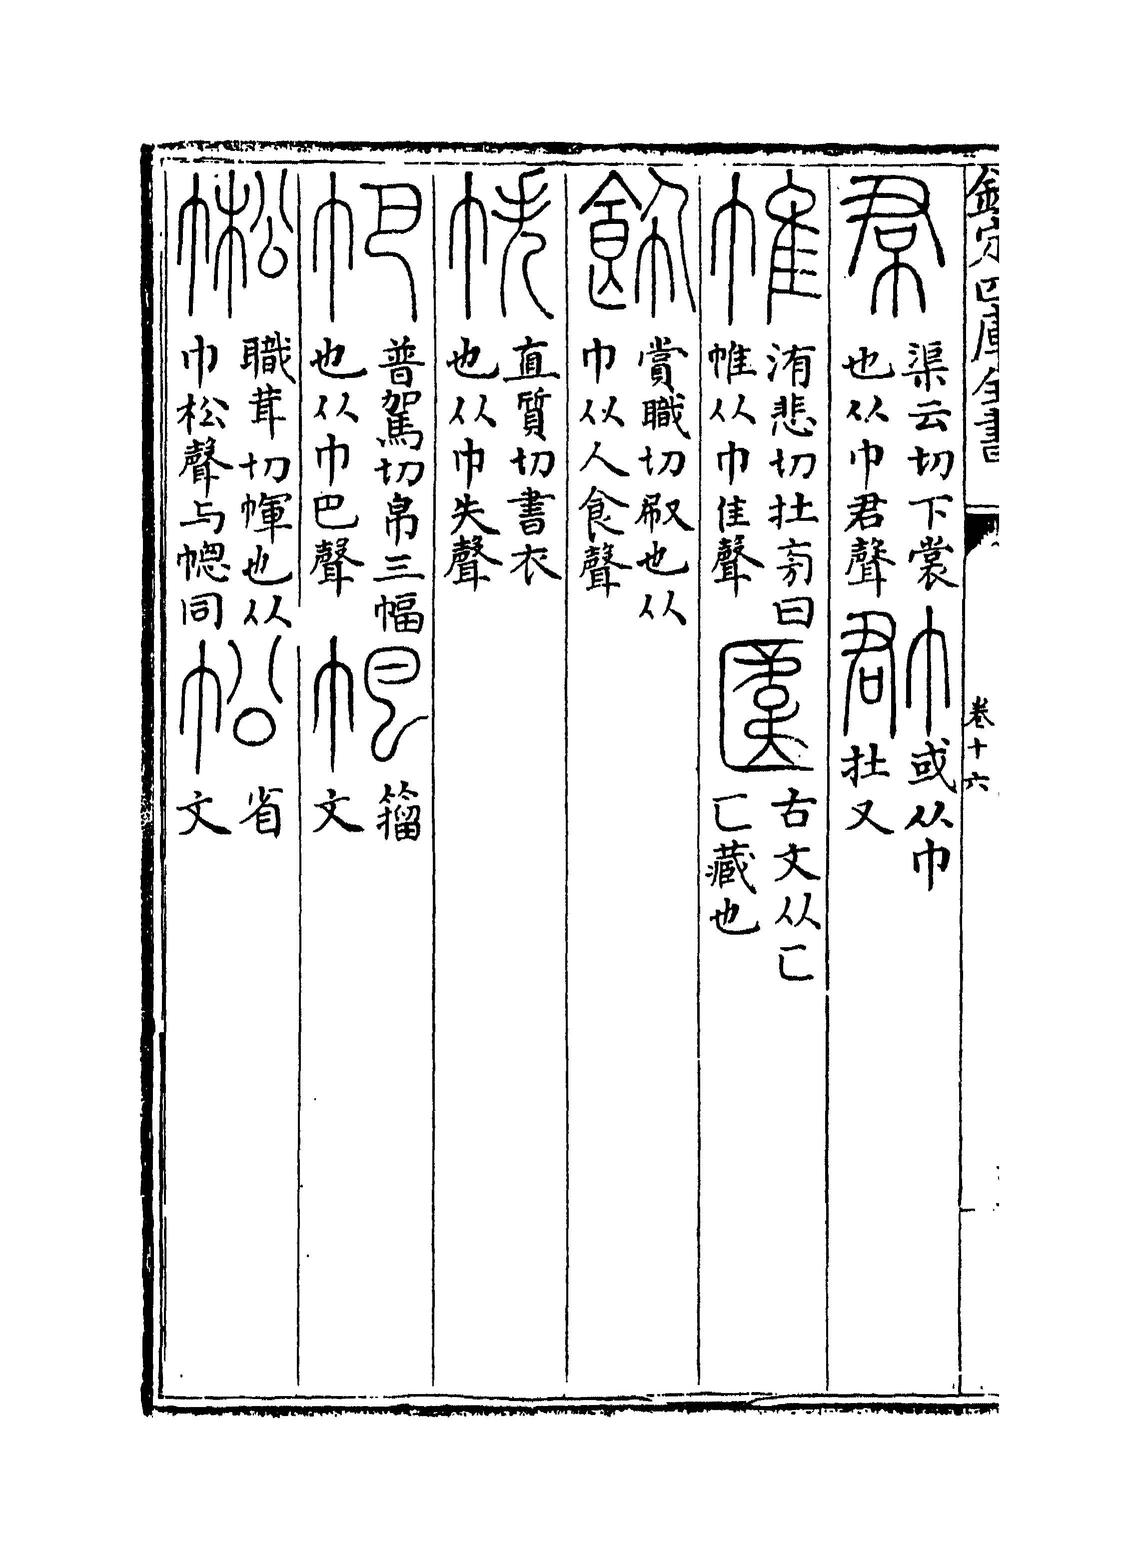 欽定四庫全書
卷十六
帬 渠云切下裳
也从巾君聲
帬 或从巾
在又
帷 洧悲切在㫄曰
帷从巾隹聲
古文从匸
匸藏也
飾 賞職切㕞也从
巾从人食聲
帙 直質切書衣
也从巾失聲
帊 普駕切帛三幅
也从巾巴聲
帊 籀
文
㡆 職茸切㡓也从
巾松聲与幒同
㕬 省
文